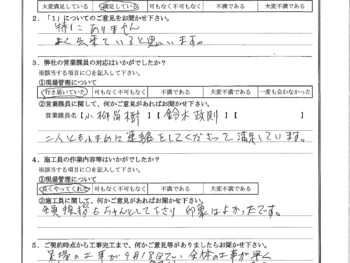 大変満足している 満足している 可もなく不可もなく 不満である 大変不満である
2．「1」についてのご意見をお聞かせ下さい。
特にありません
よく出来ていると思います。
3．弊社の営業課員の対応はいかがでしたか？
※該当する項目に○を記入して下さい。
①現場管理について
行き届いていた 可もなく不可もなく 不満である 大変不満である 一度も会わなかった
②営業課員に関して、何かご意見があればお聞かせ下さい。
営業課員名【小柳 樹】【鈴木 政則】【 】
二人ともこまめに連絡をしてくださって満足しています。
4．施工員の作業内容等はいかがでしたか？
※該当する項目に○を記入して下さい。
①現場管理について
良くやってくれた 可もなく不可もなく 不満である 大変不満である
②施工員に関して、何かご意見があればお聞かせ下さい。
全員挨拶もちゃんとして下さり 印象はよかったです。
5．ご契約時点から工事完工まで、何かご意見等がありましたらお聞かせ下さい。
の工事が9月 全体の工事が